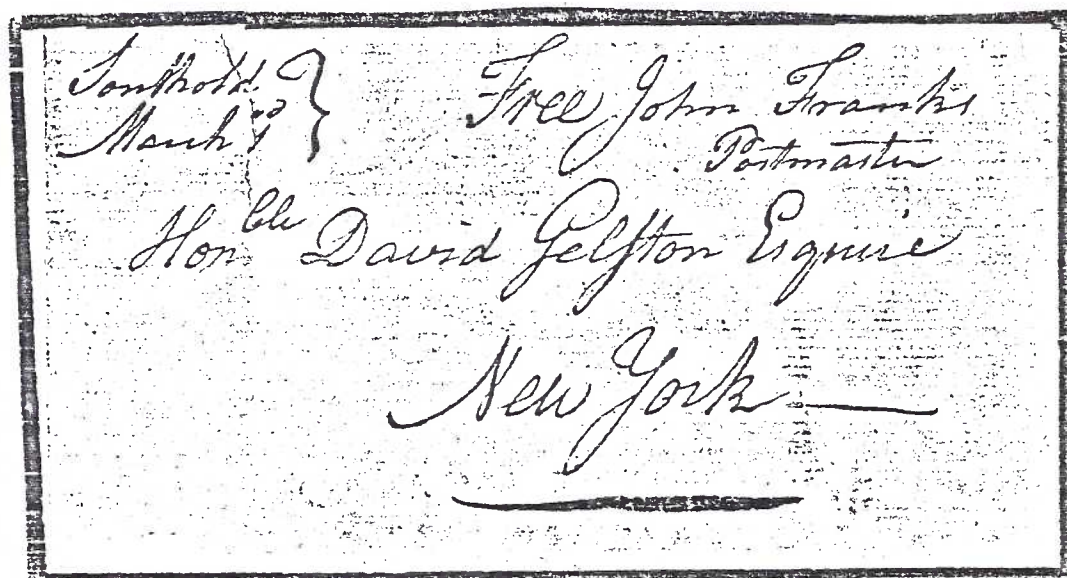 Southold
March 1
Free John Franks
Postmaster
Honble David Gelston Esquire
New York